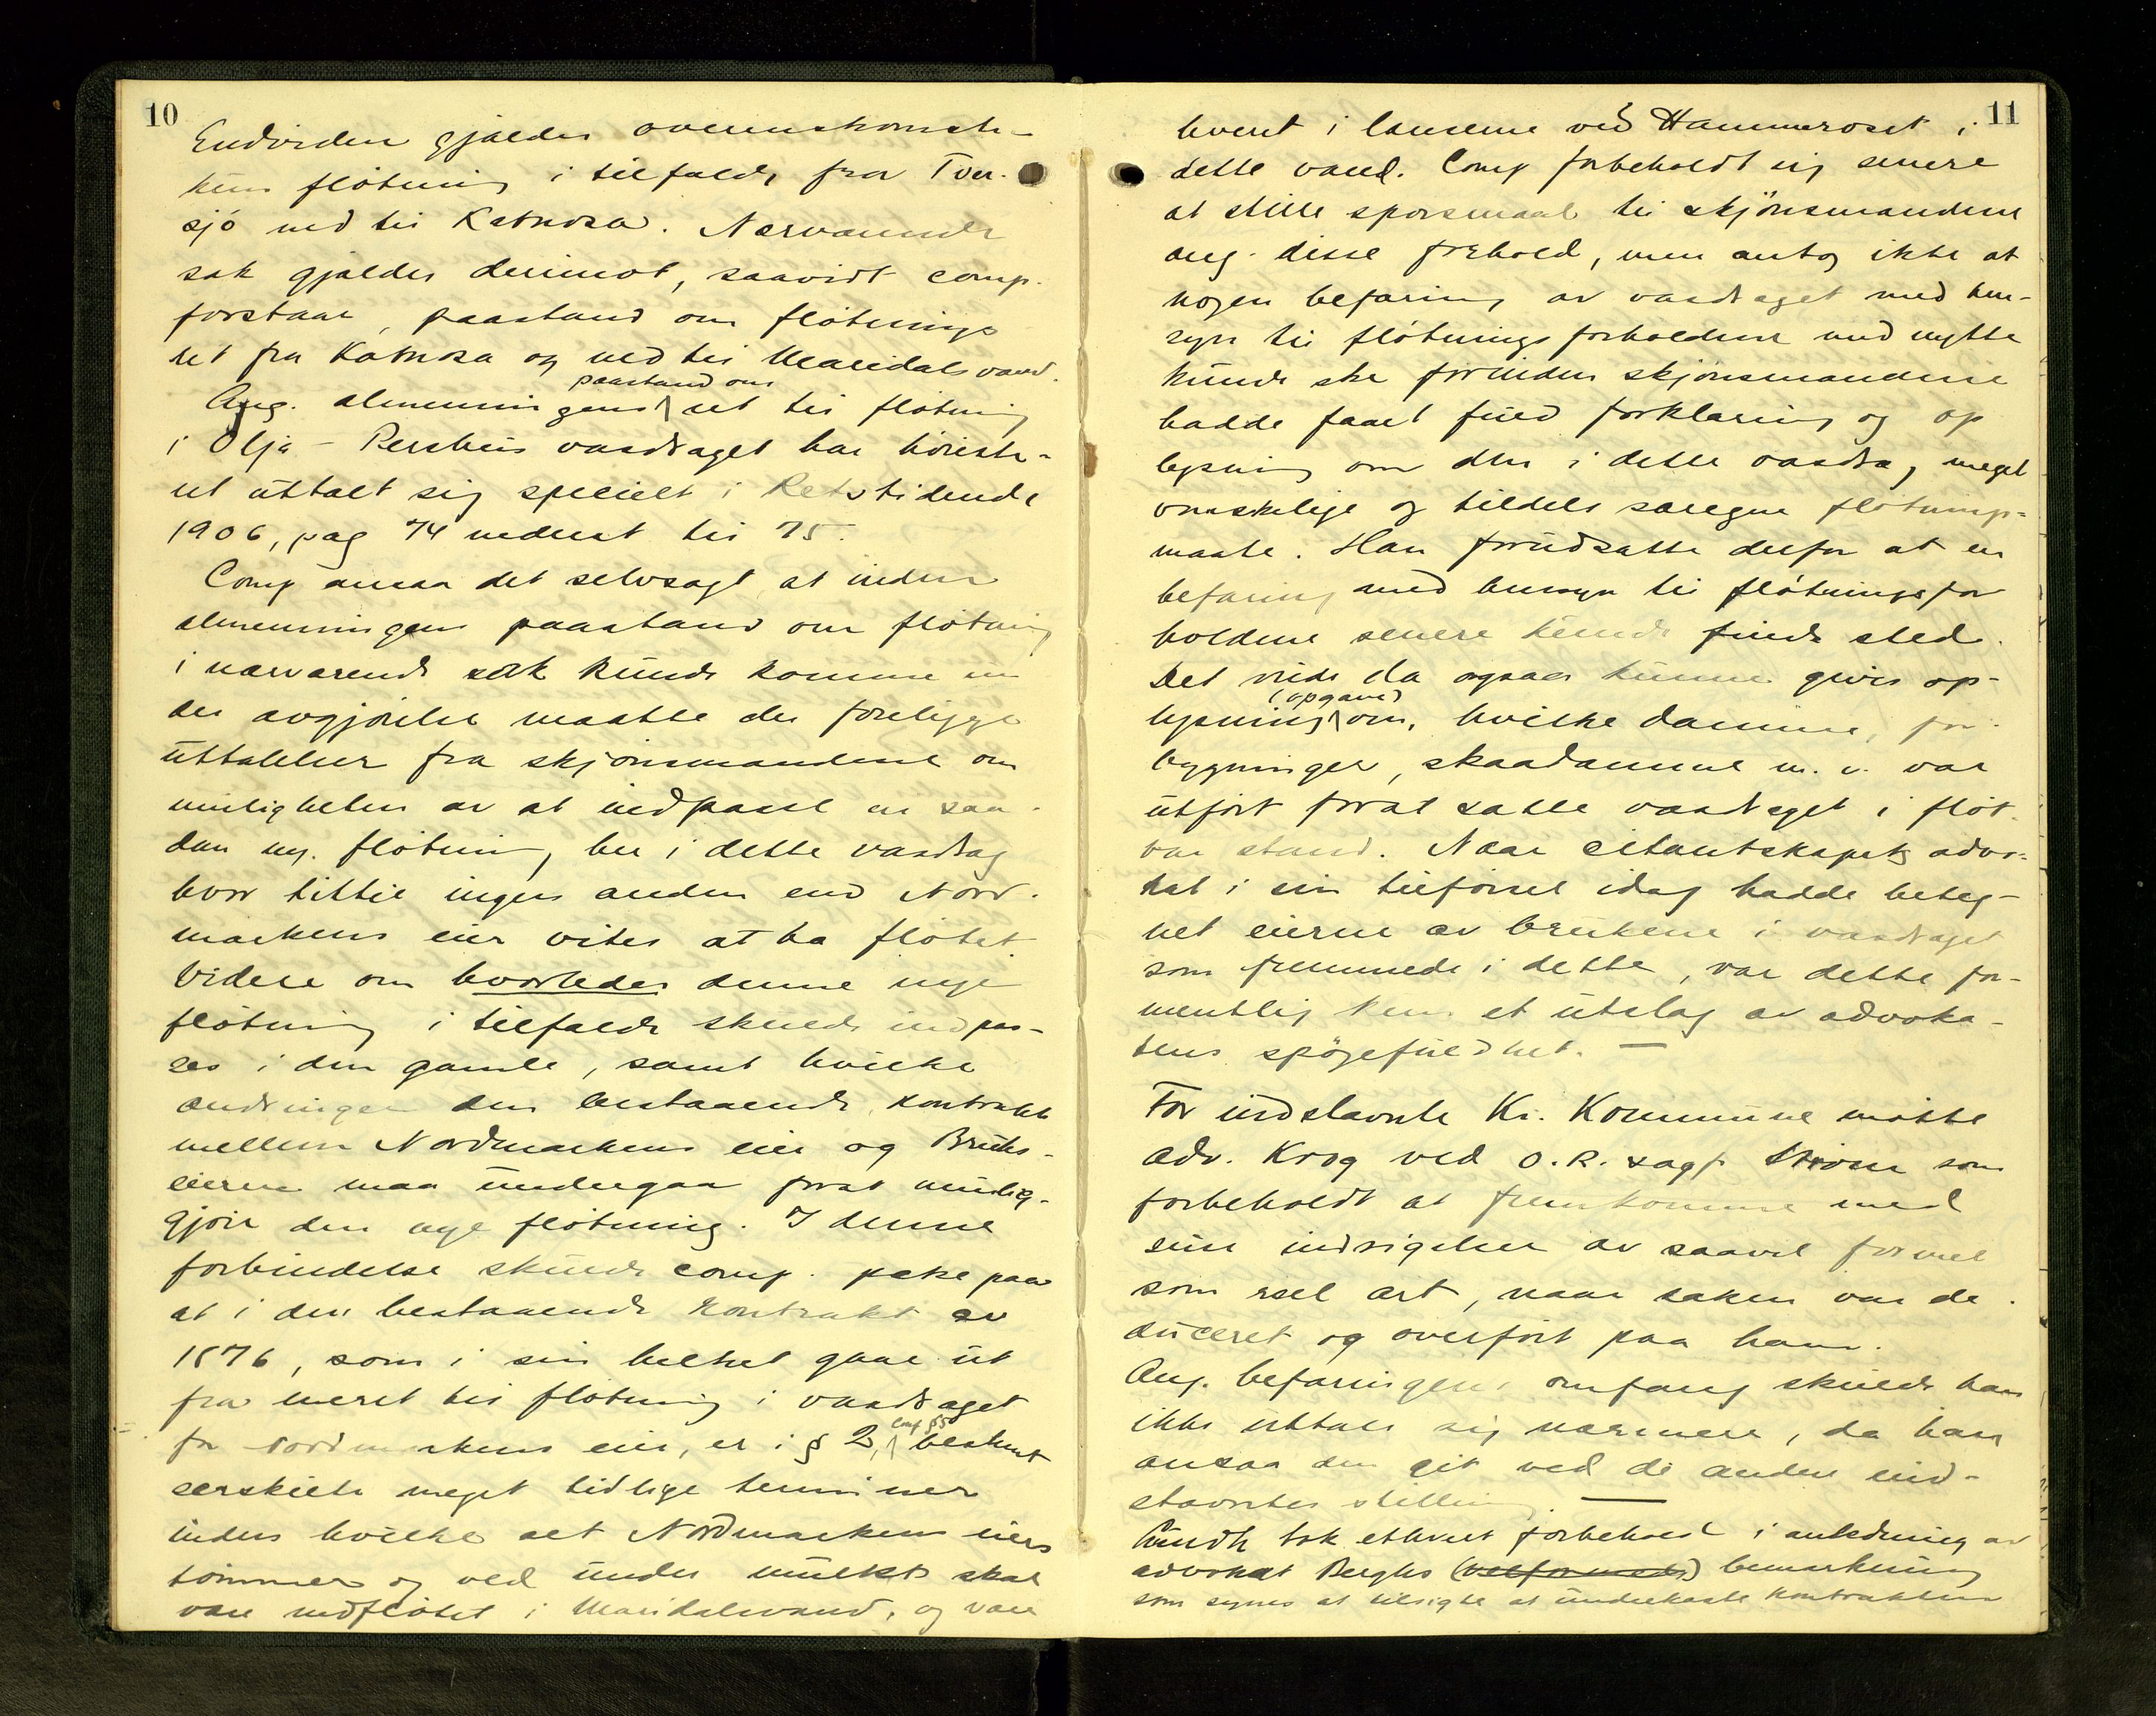 10
Endvidere gjælder overenskomsten
kun fløtning i tilfælde fra Tver-
sjø ned til Katnosa. Nærværende
sak gjælder derimot, saavidt comp.
forstaar, paastand om fløtnings
ret fra Katnosa og ned til Maridalsvand.
Ang. almenningens paastand om ret til fløtning
i Olja-Pershus vasdraget har høieste-
ret uttalt sig specielt i Retstidende
1906, pag 74 nederst til 75.
Comp ansaa det selvsagt, at inden
almenningens paastand om fløtning
i nærværende sak kunde komme under
avgjørelse maatte der foreligge
uttalelser fra skjønsmændene om
muligheten av at indpasse en saa-
dan ny fløtning her i dette vasdrag
hvor hittil ingen anden end Nord-
markens eier vites at ha fløtet
Videre om hvorledes denne nye
fløtning i tilfælde skulde indpas-
ses i den gamle, samt hvilke
ændringer den bestaaende kontrakt
mellem Nordmarkens eier og Bruks-
eierne maa undergaa forat mulig-
gjøre den nye fløtning. I denne
forbindelse skulde comp. peke paa
at i den bestaaende kontrakt av
1876, som i sin helhet gaar ut
fra eneret til fløtning i vasdraget
for Nordmarkens eier, er i § 2, bestemt
særskilte meget tidlige terminer
inden hvilke alt Nordmarkens eiers
tømmer og ved under mulkt skal
være nedfløtet i Maridalsvand, og være
11
hveret i lænserne ved Hammeroset i
dette vand. Comp forbeholdt sig senere
at stille spørsmaal til skjønsmændene
ang. disse forhold, men antog ikke at
nogen befaring av vasdraget med hen-
syn til fløtningsforholdene med nytte
kunde ske forinden skjønsmændene
hadde faaet fuld forklaring og op
lysning om den i dette vasdrag meget
vanskelige og tildels særegne fløtnings-
maate. Han forudsatte derfor at en
befaring med hensyn til fløtningsfor
holdene senere kunde finde sted.
Det vilde da ogsaa kunne gives op-
lysning (opgave) om, hvilke damme, for-
bygninger, skaadamme m. v. var
utført forat sætte vasdraget i fløt-
bar stand. Naar citantskapets advo-
kat i sin tilførsel idag hadde beteg-
net eierne av brukene i vasdraget
som fremmede i dette, var dette for-
mentlig kun et utslag av advoka-
tens spøgefuldhet. —
For indstevnte Kr. Kommune møtte
Adv. Krog ved O.R. sagf. Strøm som
forbeholdt at fremkomme med
sine indsigelser av saavel formel
som reel art, naar saken var de-
duceret og overført paa ham.
Ang. befaringens omfang skulde han
ikke uttale sig nærmere, da han
ansaa den git ved de andre ind-
stevntes stilling. —
tok ethvert forbehold i anledning av
advokat Berghs (velformede) bemerkning
som synes at tilsigte at underkaste kontrakten